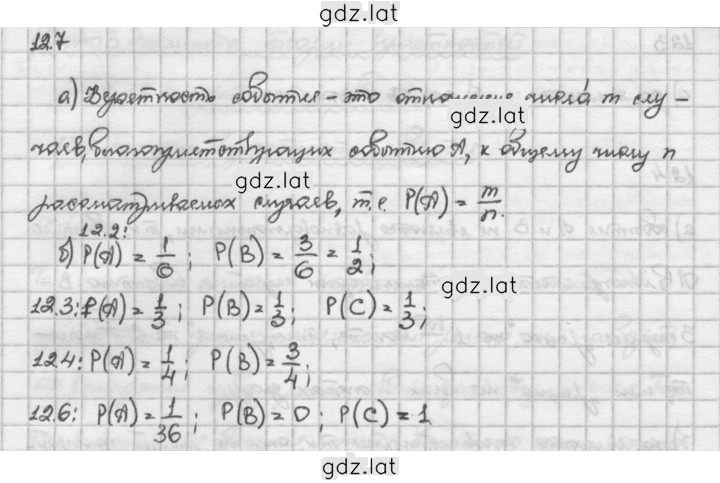 gdz.lat
12.7
а) Вероятность события – это отношение числа m слу-
gdz.lat
чаев, благоприятствующих событию A, к общему числу n
gdz.lat
рассматриваемых случаев, т.е. P(A) = m/n.
12.2:
б) P(A) = 1/6; P(B) = 3/6 = 1/2;
gdz.lat
12.3: P(A) = 1/3; P(B) = 1/3; P(C) = 1/3;
gdz.lat
12.4: P(A) = 1/4; P(B) = 3/4;
12.6: P(A) = 1/36; P(B) = 0; P(C) = 1
gdz.lat